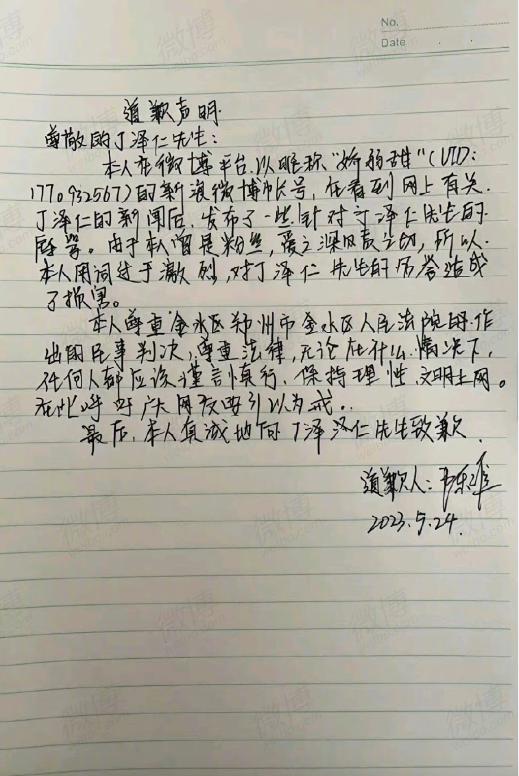 No.
Date
道歉声明
尊敬的丁泽仁先生：
本人在微博平台以昵称"娇弱雄"(UID:
1770932567)的新浪微博帐号，在看到网上有关
丁泽仁的新闻后，发布了一些针对丁泽仁先生的
辱骂。由于本人曾是粉丝，爱之深及责之切，所以
本人用词过于激烈，对丁泽仁先生的名誉造成
了损害。
本人尊重金水区郑州市金水区人民法院的作
出的民事判决，尊重法律，无论在什么情况下，
任何人都应该谨言慎行，保持理性，文明上网。
在此呼吁广大网友要引以为戒。
最后，本人真诚地向丁泽仁先生致歉
道歉人：
2023.5.24.
微博
weibo.com